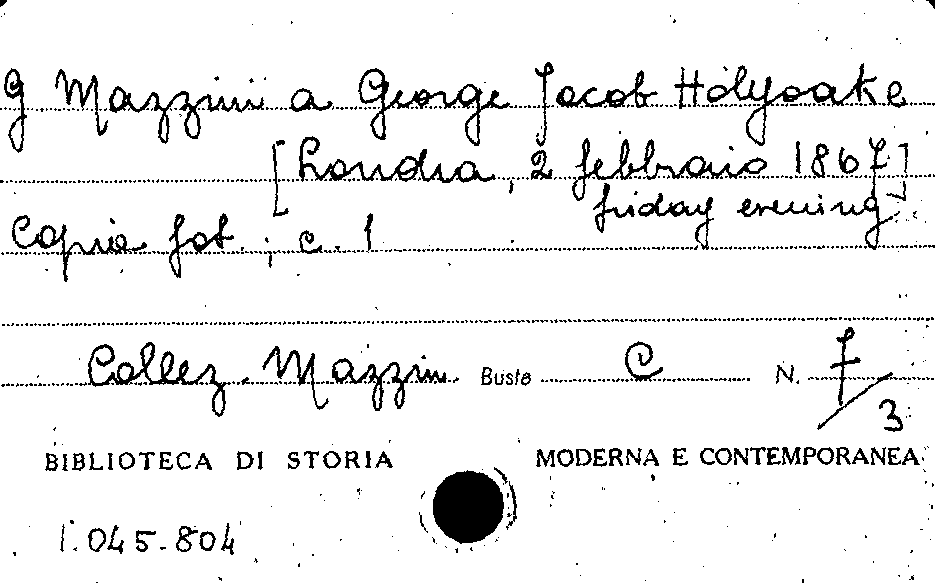 G Mazzini a George Jacob Holyoake
[Londra, 2 febbraio 1867]
friday evening
Copia fot.; c. 1
Collez. Mazzini Busta C N. 7/3
BIBLIOTECA DI STORIA MODERNA E CONTEMPORANEA
1.045.804